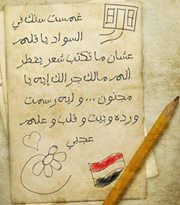 غمست سنك في
السواد يا قلم
عشان ما تكتب شعر يقطر
ألم مالك جرالك إيه يا
مجنون ... وليه رسمت
ورده وبيت وقلب وعلم
عجبي